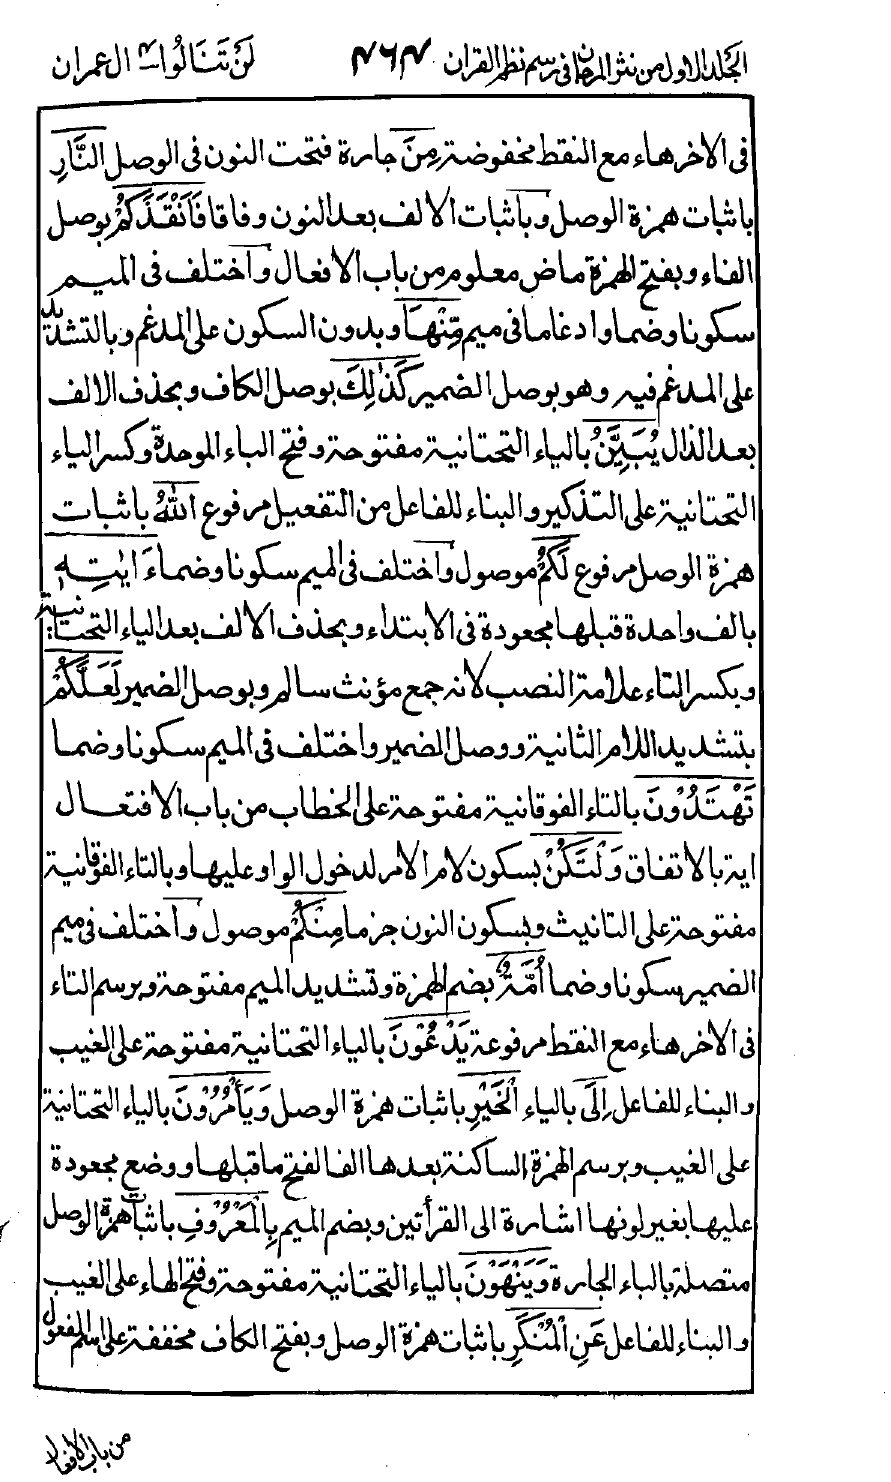 الجلد الاول من نثر المرجان فى رسم نظم القران ٤٦٤ لَنْ تَنَالُوا ٤ ال عمران
فى الاخر هاء مع النقط مخفوضة مِنَ جارة فتحت النون فى الوصل النَّارِ
باثبات همزة الوصل وباثبات الالف بعد النون وفاقا فَاَنْقَذَكُمْ بوصل
الفاء وبفتح الهمزة ماض معلوم من باب الافعال واختلف فى الميم
سكونا وضما وادغاما فى ميم مِّنْهَا وبدون السكون على المدغم وبالتشديد
على المدغم فيه وهو بوصل الضمير كَذٰلِكَ بوصل الكاف وبحذف الالف
بعد الذال يُبَيِّنُ بالياء التحتانية مفتوحة وفتح الباء الموحدة وكسر الياء
التحتانية على التذكير والبناء للفاعل من التفعيل مرفوع اللّٰهُ باثبات
همزة الوصل مرفوع لَكُمْ موصول واختلف فى الميم سكونا وضما ءَايٰتِهٖ
بالف واحدة قبلها مجعودة فى الابتداء وبحذف الالف بعد الياء التحتانية
وبكسر التاء علامة النصب لانه جمع مؤنث سالم وبوصل الضمير لَعَلَّكُمْ
بتشديد اللام الثانية ووصل الضمير واختلف فى الميم سكونا وضما
تَهْتَدُوْنَ بالتاء الفوقانية مفتوحة على الخطاب من باب الافتعال
اية بالاتفاق وَلْتَكُنْ بسكون لام الامر لدخول الواو عليها وبالتاء الفوقانية
مفتوحة على التانيث وبسكون النون جزما مِنْكُمْ موصول واختلف فى ميم
الضمير سكونا وضما اُمَّةٌ بضم الهمزة وتشديد الميم مفتوحة وبرسم التاء
فى الاخر هاء مع النقط مرفوعة يَدْعُوْنَ بالياء التحتانية مفتوحة على الغيب
والبناء للفاعل اِلَى بالياء الْخَيْرِ باثبات همزة الوصل وَيَأْمُرُوْنَ بالياء التحتانية
على الغيب وبرسم الهمزة الساكنة بعدها الفا لفتح ما قبلها ووضع مجعودة
عليها بغير لونها اشارة الى القرأتين وبضم الميم بِالْمَعْرُوْفِ باثبات همزة الوصل
متصلة بالباء الجارة وَيَنْهَوْنَ بالياء التحتانية مفتوحة وفتح الهاء على الغيب
والبناء للفاعل عَنِ الْمُنْكَرِ باثبات همزة الوصل وبفتح الكاف مخففة على اسم المفعول
من باب الافعال